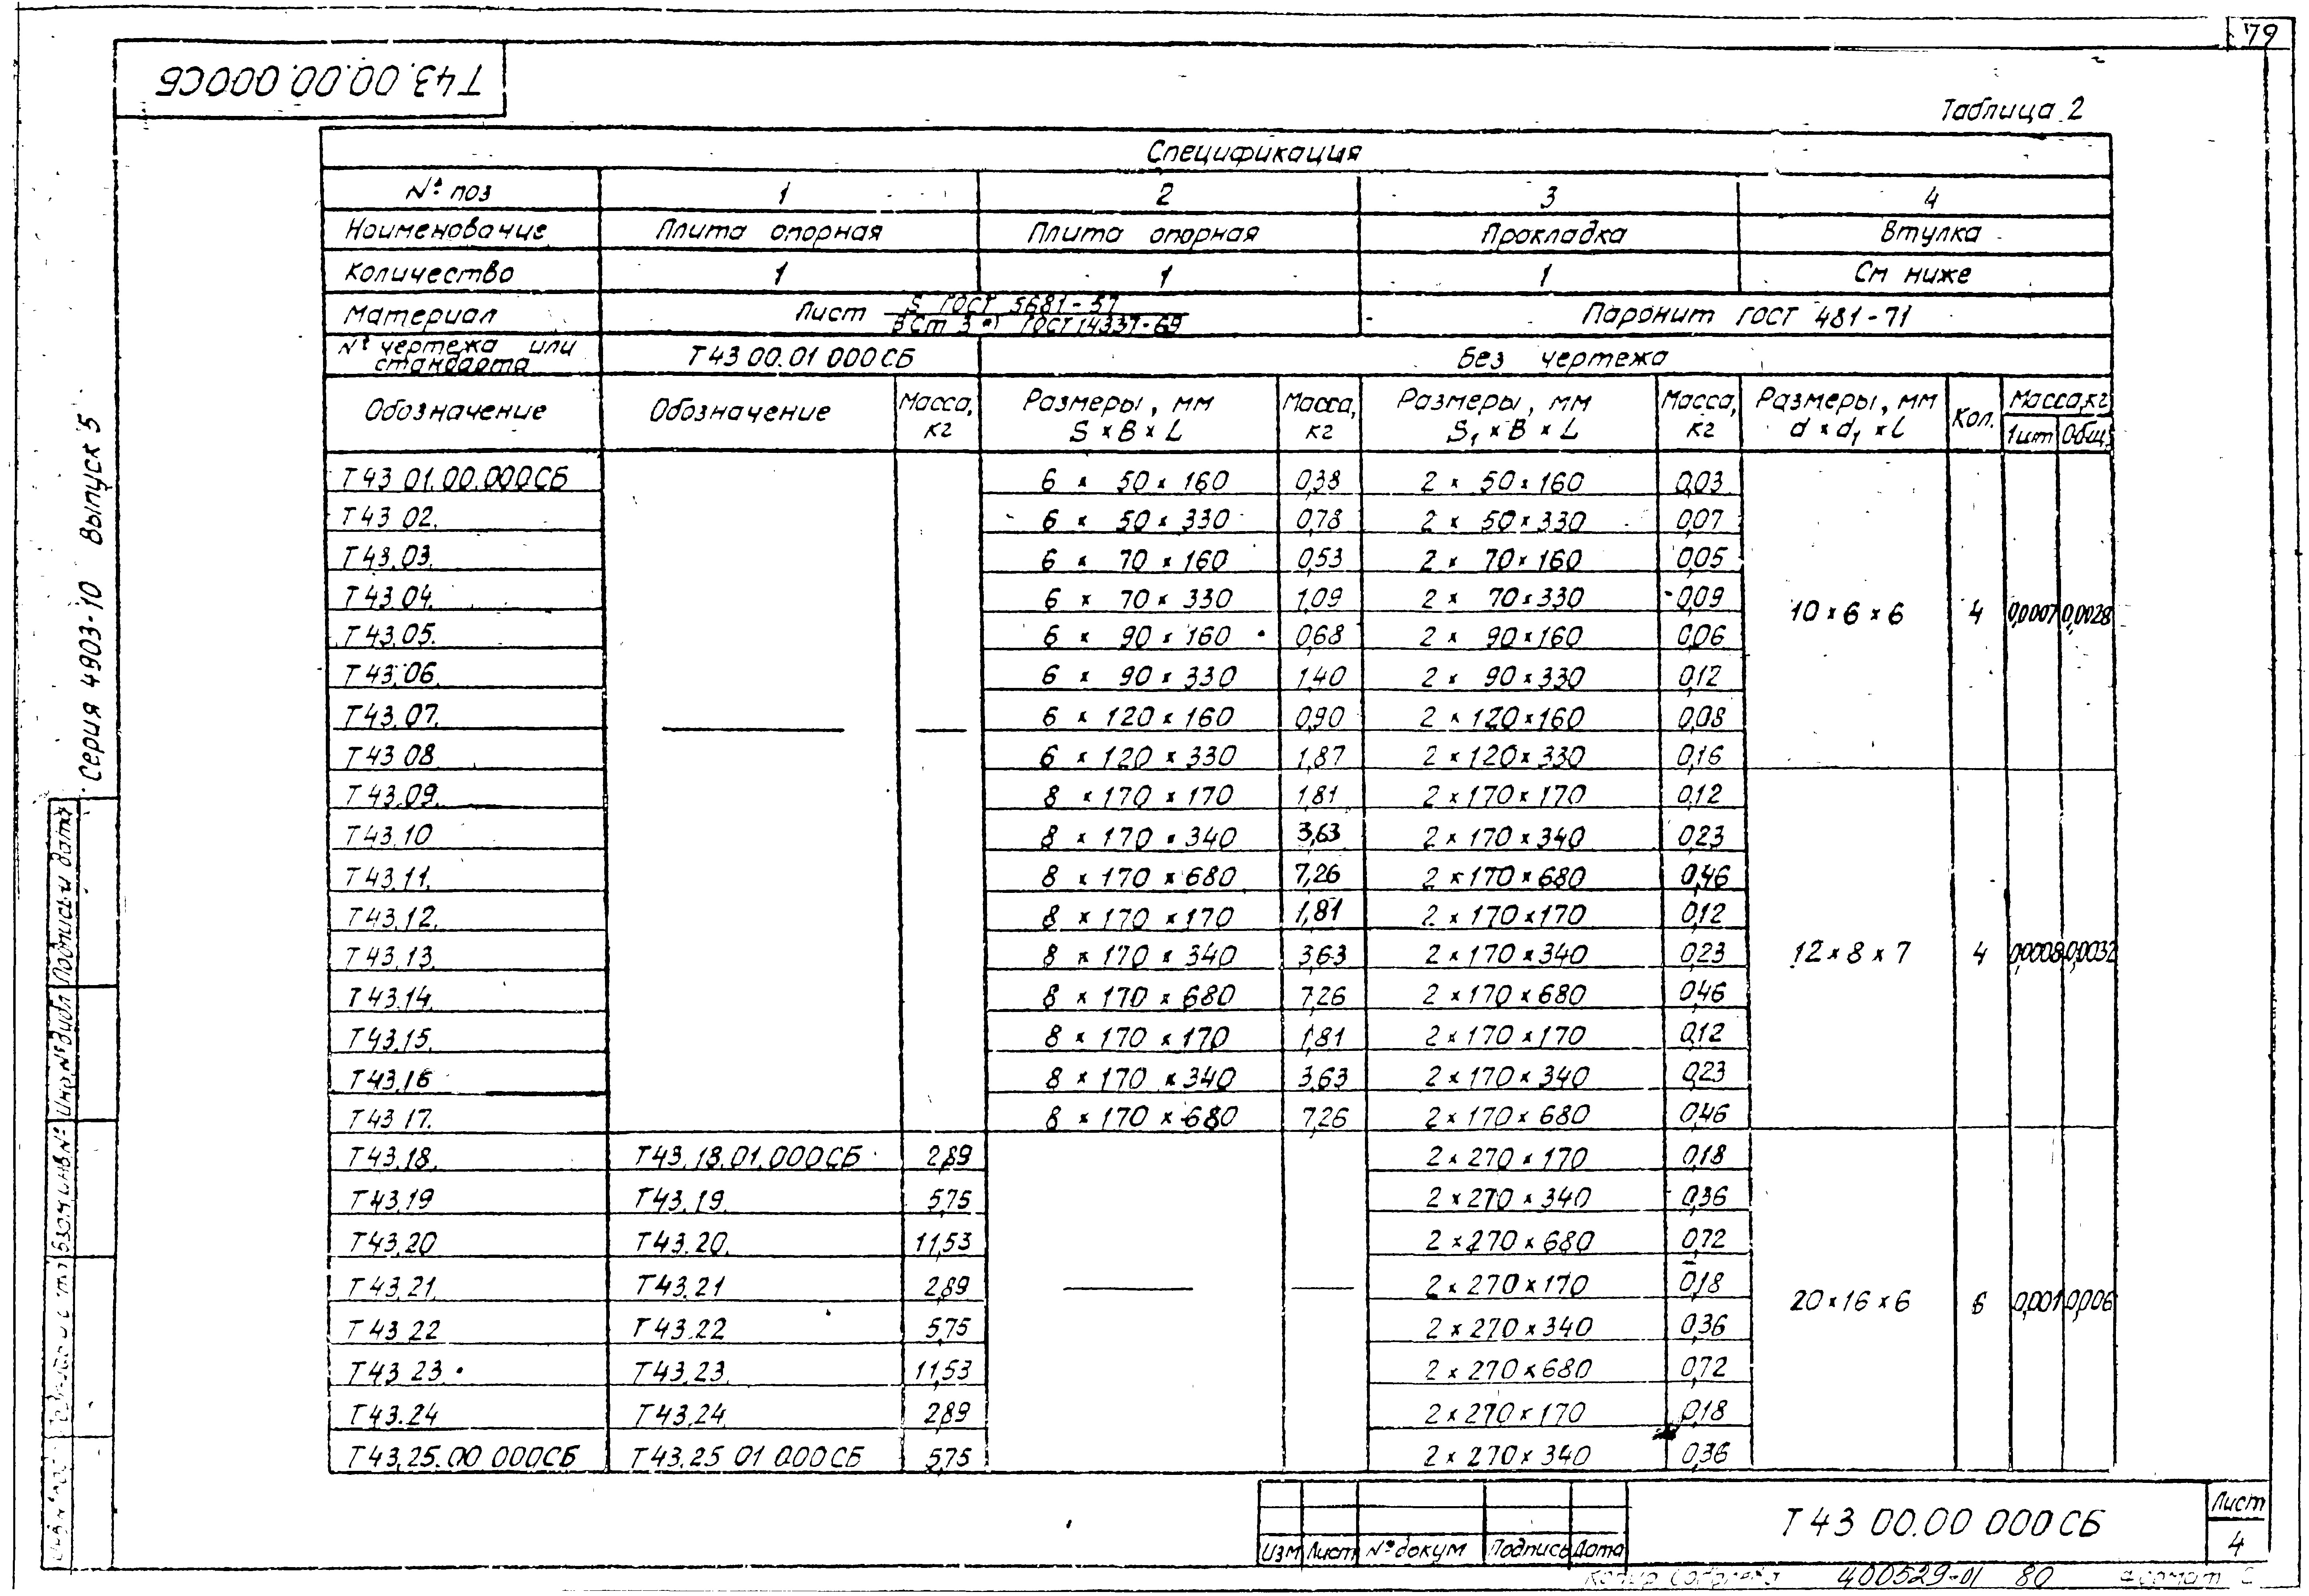 79
Т43.00.00.000СБ
Таблица 2
Спецификация
№ поз 1 2 3 4
Наименование Плита опорная Плита опорная Прокладка Втулка
Количество 1 1 1 См ниже
Материал Лист S ГОСТ 5681-57 / ВСт 3 ГОСТ 14337-69 Паронит ГОСТ 481-71
№ чертежа или стандарта Т43 00.01 000СБ Без чертежа
Обозначение Обозначение Масса, кг Размеры, мм S×B×L Масса, кг Размеры, мм S₁×B×L Масса, кг Размеры, мм d×d₁×L Кол. Масса, кг 1шт Общ.
Т43 01.00.000СБ 6 × 50 × 160 0,38 2 × 50 × 160 0,03
Т43 02. 6 × 50 × 330 0,78 2 × 50 × 330 0,07
Т43.03. 6 × 70 × 160 0,53 2 × 70 × 160 0,05
Т43.04. 6 × 70 × 330 1,09 2 × 70 × 330 0,09 10 × 6 × 6 4 0,0007 0,0028
Т43.05. 6 × 90 × 160 0,68 2 × 90 × 160 0,06
Т43.06. 6 × 90 × 330 1,40 2 × 90 × 330 0,12
Т43.07. — — 6 × 120 × 160 0,90 2 × 120 × 160 0,08
Т43 08 6 × 120 × 330 1,87 2 × 120 × 330 0,16
Т43.09. 8 × 170 × 170 1,81 2 × 170 × 170 0,12
Т43.10 8 × 170 × 340 3,63 2 × 170 × 340 0,23
Т43.11. 8 × 170 × 680 7,26 2 × 170 × 680 0,46
Т43.12. 8 × 170 × 170 1,81 2 × 170 × 170 0,12
Т43.13. 8 × 170 × 340 3,63 2 × 170 × 340 0,23 12 × 8 × 7 4 0,0008 0,0032
Т43.14. 8 × 170 × 680 7,26 2 × 170 × 680 0,46
Т43.15. 8 × 170 × 170 1,81 2 × 170 × 170 0,12
Т43.16 8 × 170 × 340 3,63 2 × 170 × 340 0,23
Т43 17. 8 × 170 × 680 7,26 2 × 170 × 680 0,46
Т43.18. Т43.18.01.000СБ 2,89 2 × 270 × 170 0,18
Т43.19 Т43.19. 5,75 2 × 270 × 340 0,36
Т43.20 Т43.20. 11,53 2 × 270 × 680 0,72
Т43.21. Т43.21 2,89 — — 2 × 270 × 170 0,18 20 × 16 × 6 6 0,001 0,006
Т43 22 Т43.22 5,75 2 × 270 × 340 0,36
Т43 23. Т43.23. 11,53 2 × 270 × 680 0,72
Т43.24 Т43.24. 2,89 2 × 270 × 170 0,18
Т43.25.00 000СБ Т43.25 01 000СБ 5,75 2 × 270 × 340 0,36
Серия 4903-10 Выпуск 5
Подпись и дата
Инв № дубл
Взам инв №
Т43 00.00 000СБ
Лист
4
Изм Лист № докум Подпись Дата
Копир 400529-01 80 Формат